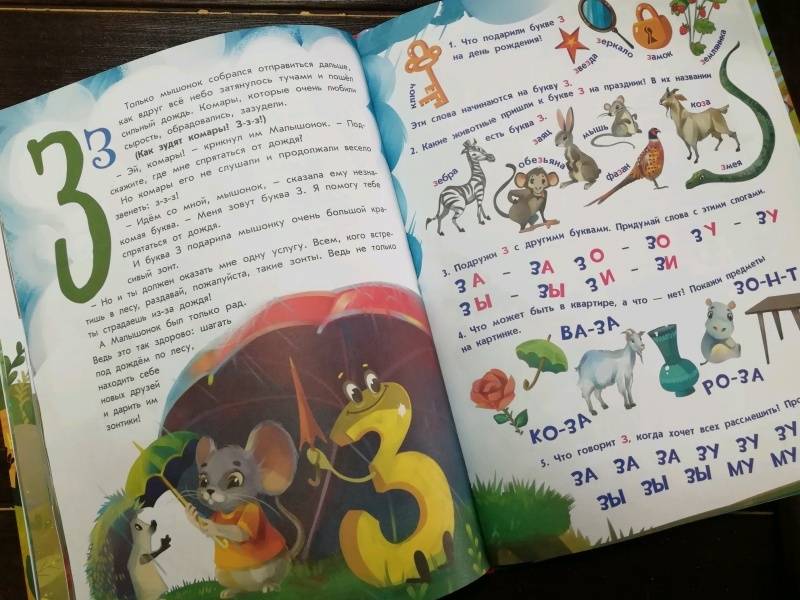 З з
Только мышонок собрался отправиться дальше,
как вдруг всё небо затянулось тучами и пошёл
сильный дождь. Комары, которые очень любили
сырость, обрадовались, зазудели.
(Как зудят комары! З-з-з!)
– Эй, комары! – крикнул им Малышонок. – Под-
скажите, где мне спрятаться от дождя?
Но комары его не слушали и продолжали весело
звенеть: з-з-з!
– Идём со мной, мышонок, – сказала ему незна-
комая буква. – Меня зовут буква З. Я помогу тебе
спрятаться от дождя.
И буква З подарила мышонку очень большой кра-
сивый зонт.
– Но и ты должен оказать мне одну услугу. Всем, кого встре-
тишь в лесу, раздавай, пожалуйста, такие зонты. Ведь не только
ты страдаешь из-за дождя!
А Малышонок был только рад.
Ведь это так здорово: шагать
под дождём по лесу,
находить себе
новых друзей
и дарить им
зонтики!
1. Что подарили букве З
на день рождения?
ключ
звезда
зеркало
замок
земляника
Эти слова начинаются на букву З.
2. Какие животные пришли к букве З на праздник? В их названии
есть буква З.
зебра
обезьяна
заяц
мышь
фазан
коза
змея
3. Подружи З с другими буквами. Придумай слова с этими слогами.
З А – ЗА З О – ЗО З У – ЗУ
З Ы – ЗЫ З И – ЗИ
4. Что может быть в квартире, а что — нет! Покажи предметы
на картинке.
ВА-ЗА
ЗО-Н-Т
КО-ЗА
РО-ЗА
5. Что говорит З, когда хочет всех рассмешить!
ЗА ЗА ЗА ЗУ ЗУ ЗУ
ЗЫ ЗЫ ЗЫ МУ МУ